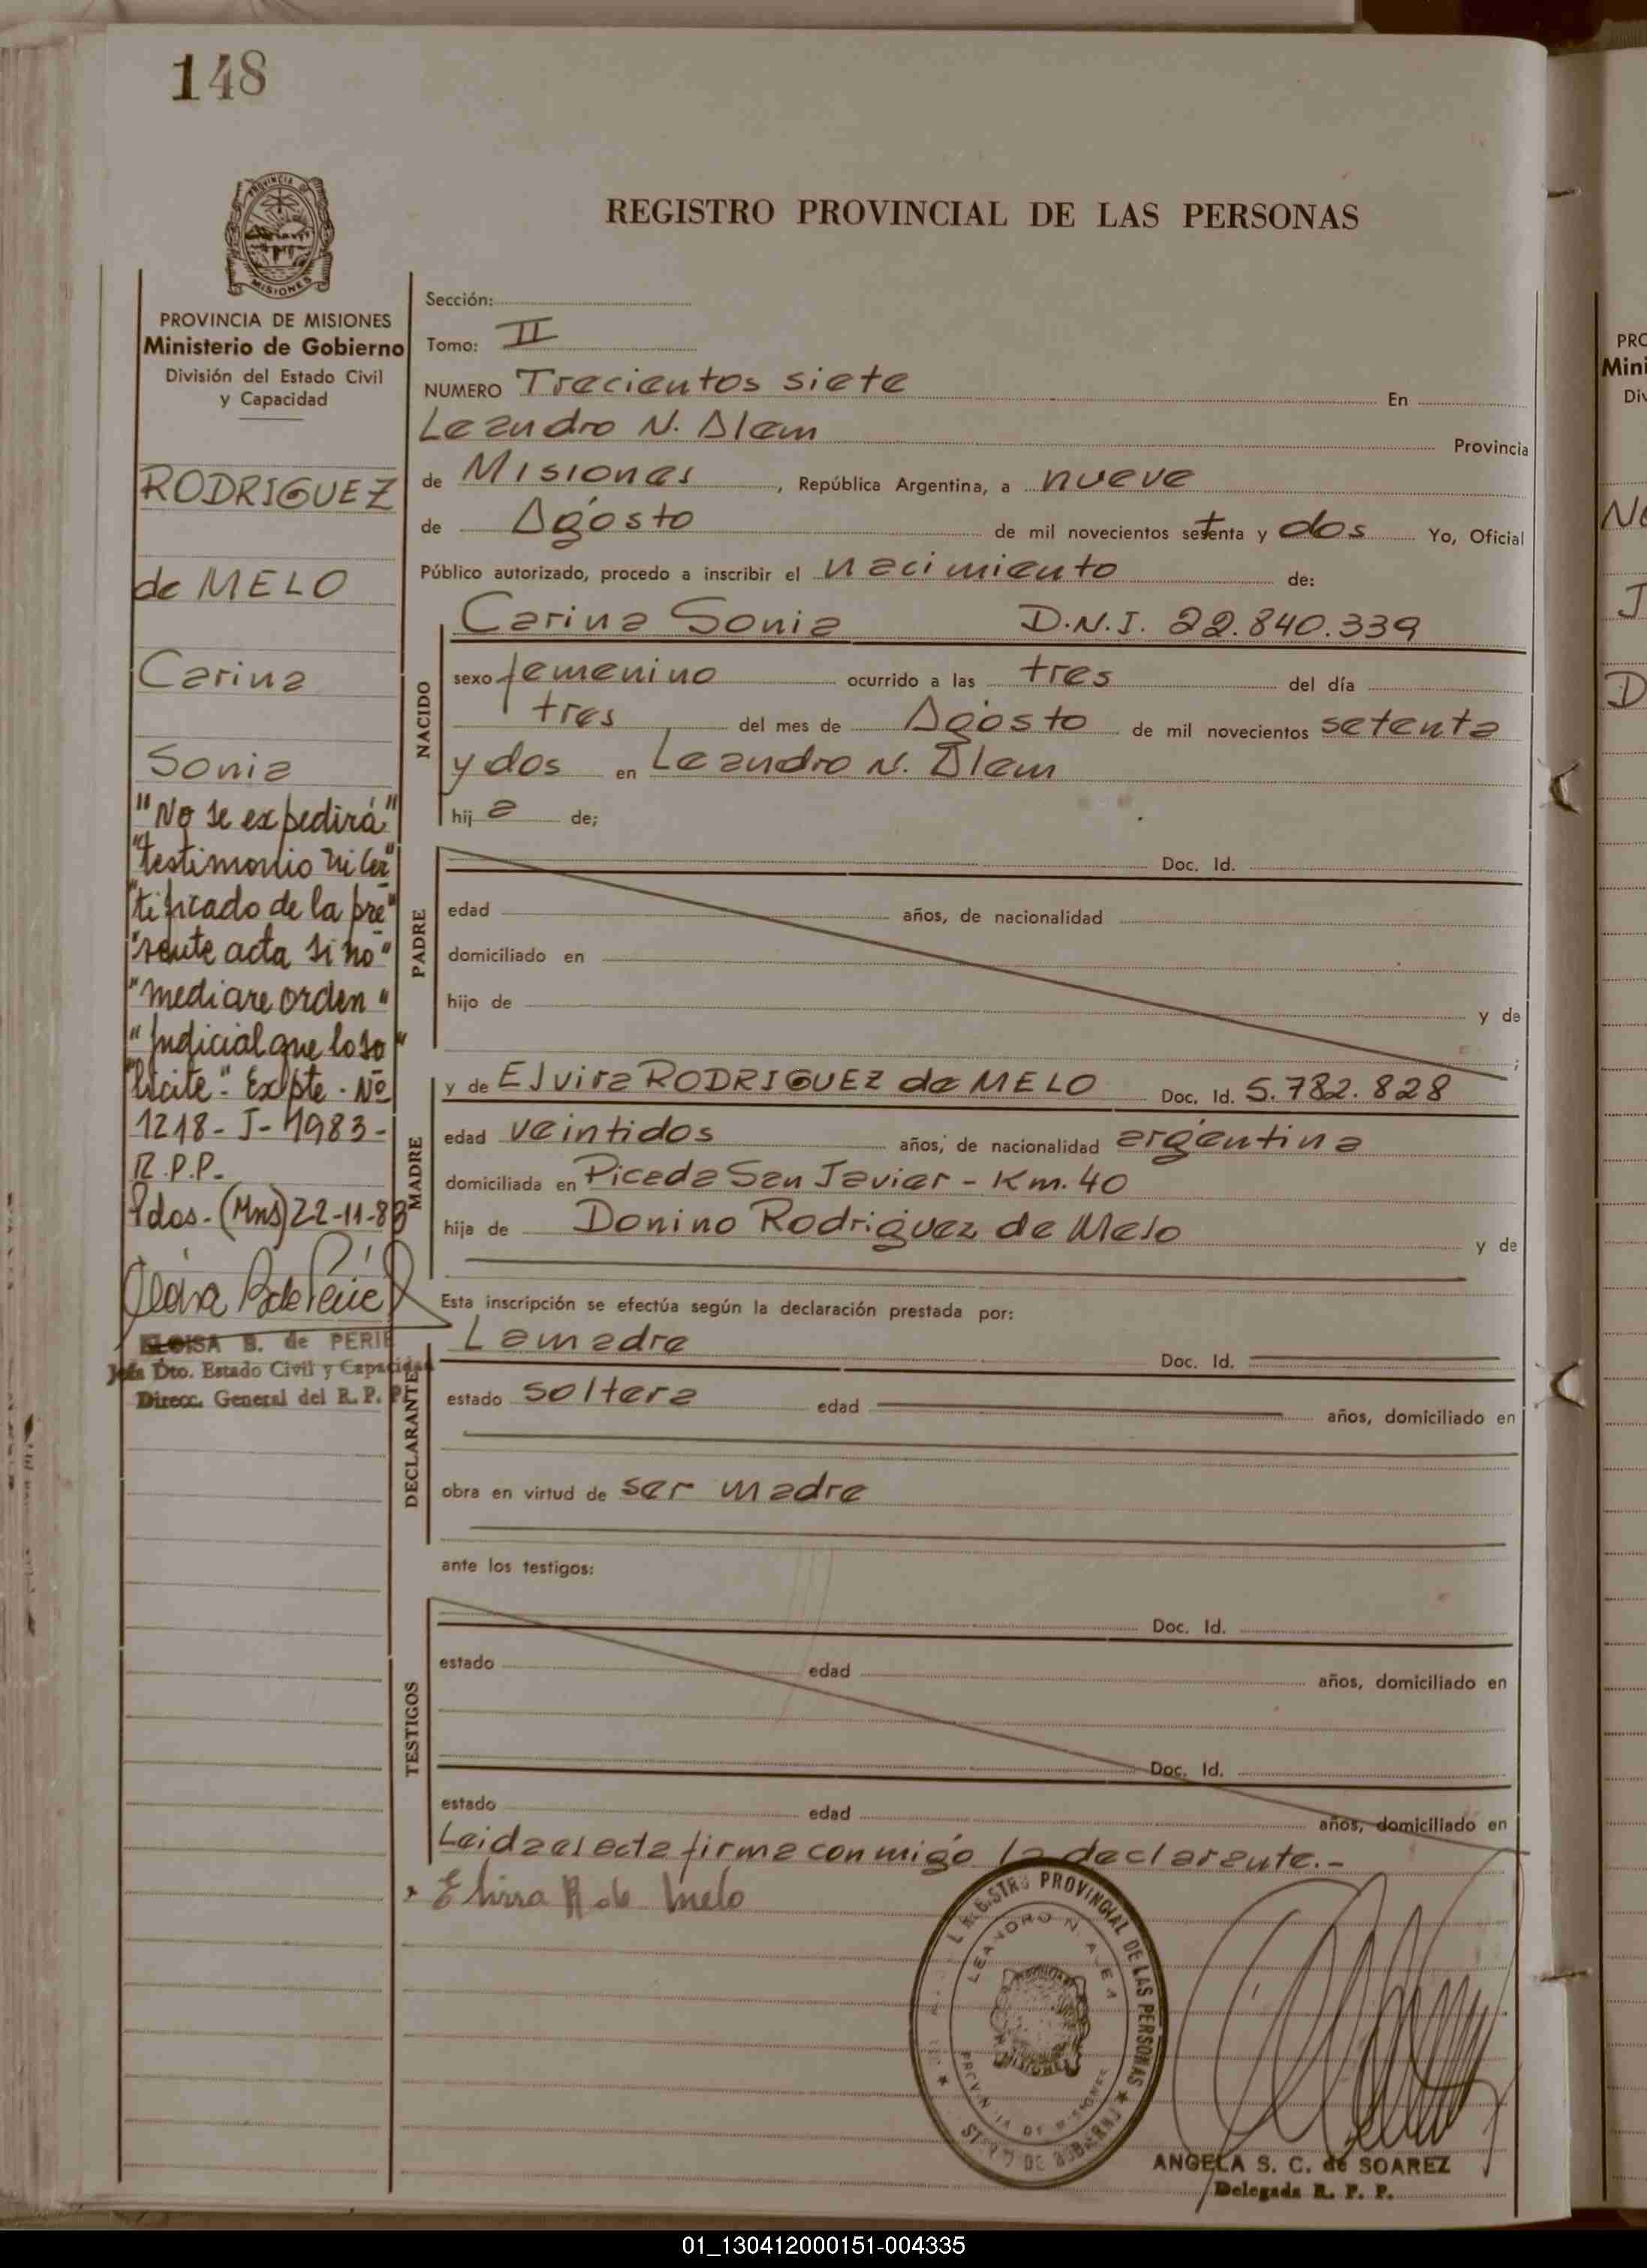 148
REGISTRO PROVINCIAL DE LAS PERSONAS
PROVINCIA DE MISIONES
Ministerio de Gobierno
División del Estado Civil
y Capacidad
RODRIGUEZ
de MELO
Carina
Sonia
"No se expedirá"
"testimonio ni cer"
"tificado de la pre"
"sente acta si no"
"mediare orden"
"Judicial que lo so"
"licite". Expte. Nº
1218-J-1983-
R.P.P.
Pdas.-(Mns)22-11-83
ELOISA B. de PERIE
Jefa Dto. Estado Civil y Capacidad
Direcc. General del R. P. P.
Sección:
Tomo: II
NUMERO Trecientos siete En
Leandro N. Alem Provincia
de Misiones, República Argentina, a nueve
de Agosto de mil novecientos setenta y dos Yo, Oficial
Público autorizado, procedo a inscribir el nacimiento de:
NACIDO
Carina Sonia D.N.I. 22.840.339
sexo femenino ocurrido a las tres del día
tres del mes de Agosto de mil novecientos setenta
y dos en Leandro N. Alem
hija de;
PADRE
Doc. Id.
edad años, de nacionalidad
domiciliado en
hijo de y de
;
MADRE
y de Elvira RODRIGUEZ de MELO Doc. Id. 5.782.828
edad veintidos años, de nacionalidad argentina
domiciliada en Picada San Javier - Km. 40
hija de Donino Rodriguez de Melo y de
Esta inscripción se efectúa según la declaración prestada por:
DECLARANTE
La madre Doc. Id.
estado soltera edad años, domiciliado en
obra en virtud de ser madre
ante los testigos:
TESTIGOS
Doc. Id.
estado edad años, domiciliado en
Doc. Id.
estado edad años, domiciliado en
Leida el acta firma conmigo la declarante.-
Elvira R de Melo
REGISTRO PROVINCIAL DE LAS PERSONAS
LEANDRO N. ALEM
PROVINCIA DE MISIONES
DE GOBIERNO
MISIONES
ANGELA S. C. de SOAREZ
Delegada R. P. P.
PRO
Mini
Div
01_130412000151-004335